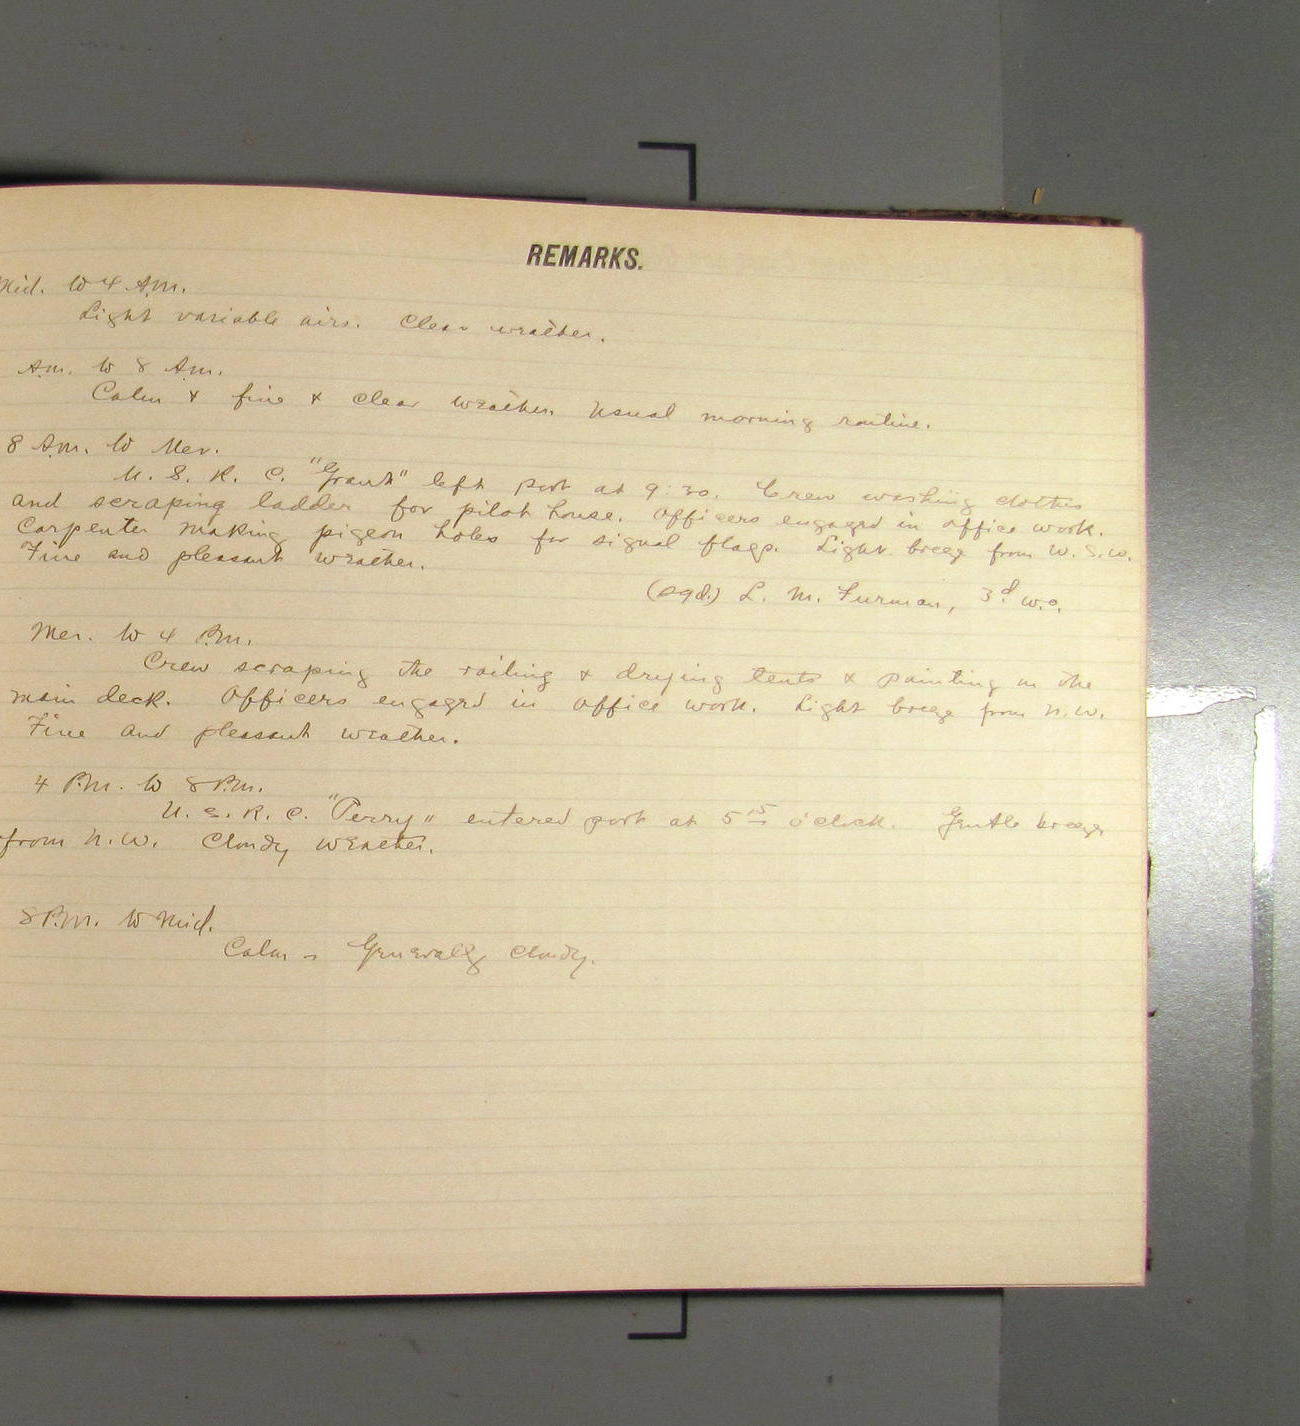 REMARKS.
Mid. to 4 A.M.
Light variable airs. Clear weather.
A.M. to 8 A.M.
Calm & fine & clear weather. Usual morning routine.
8 A.M. to Mer.
U. S. R. C. "Grant" left port at 9:30. Crew washing clothes
and scraping ladder for pilot house. Officers engaged in office work.
Carpenter making pigeon holes for signal flags. Light breeze from W. S. W.
Fine and pleasant weather.
(sgd.) L. M. Furman, 3d W.O.
Mer. to 4 P.M.
Crew scraping the railing & drying tents & painting on the
main deck. Officers engaged in office work. Light breeze from N.W.
Fine and pleasant weather.
4 P.M. to 8 P.M.
U. S. R. C. "Perry" entered port at 5 15 o'clock. Gentle breeze
from N.W. Cloudy weather.
8 P.M. to Mid.
Calm - Generally cloudy.